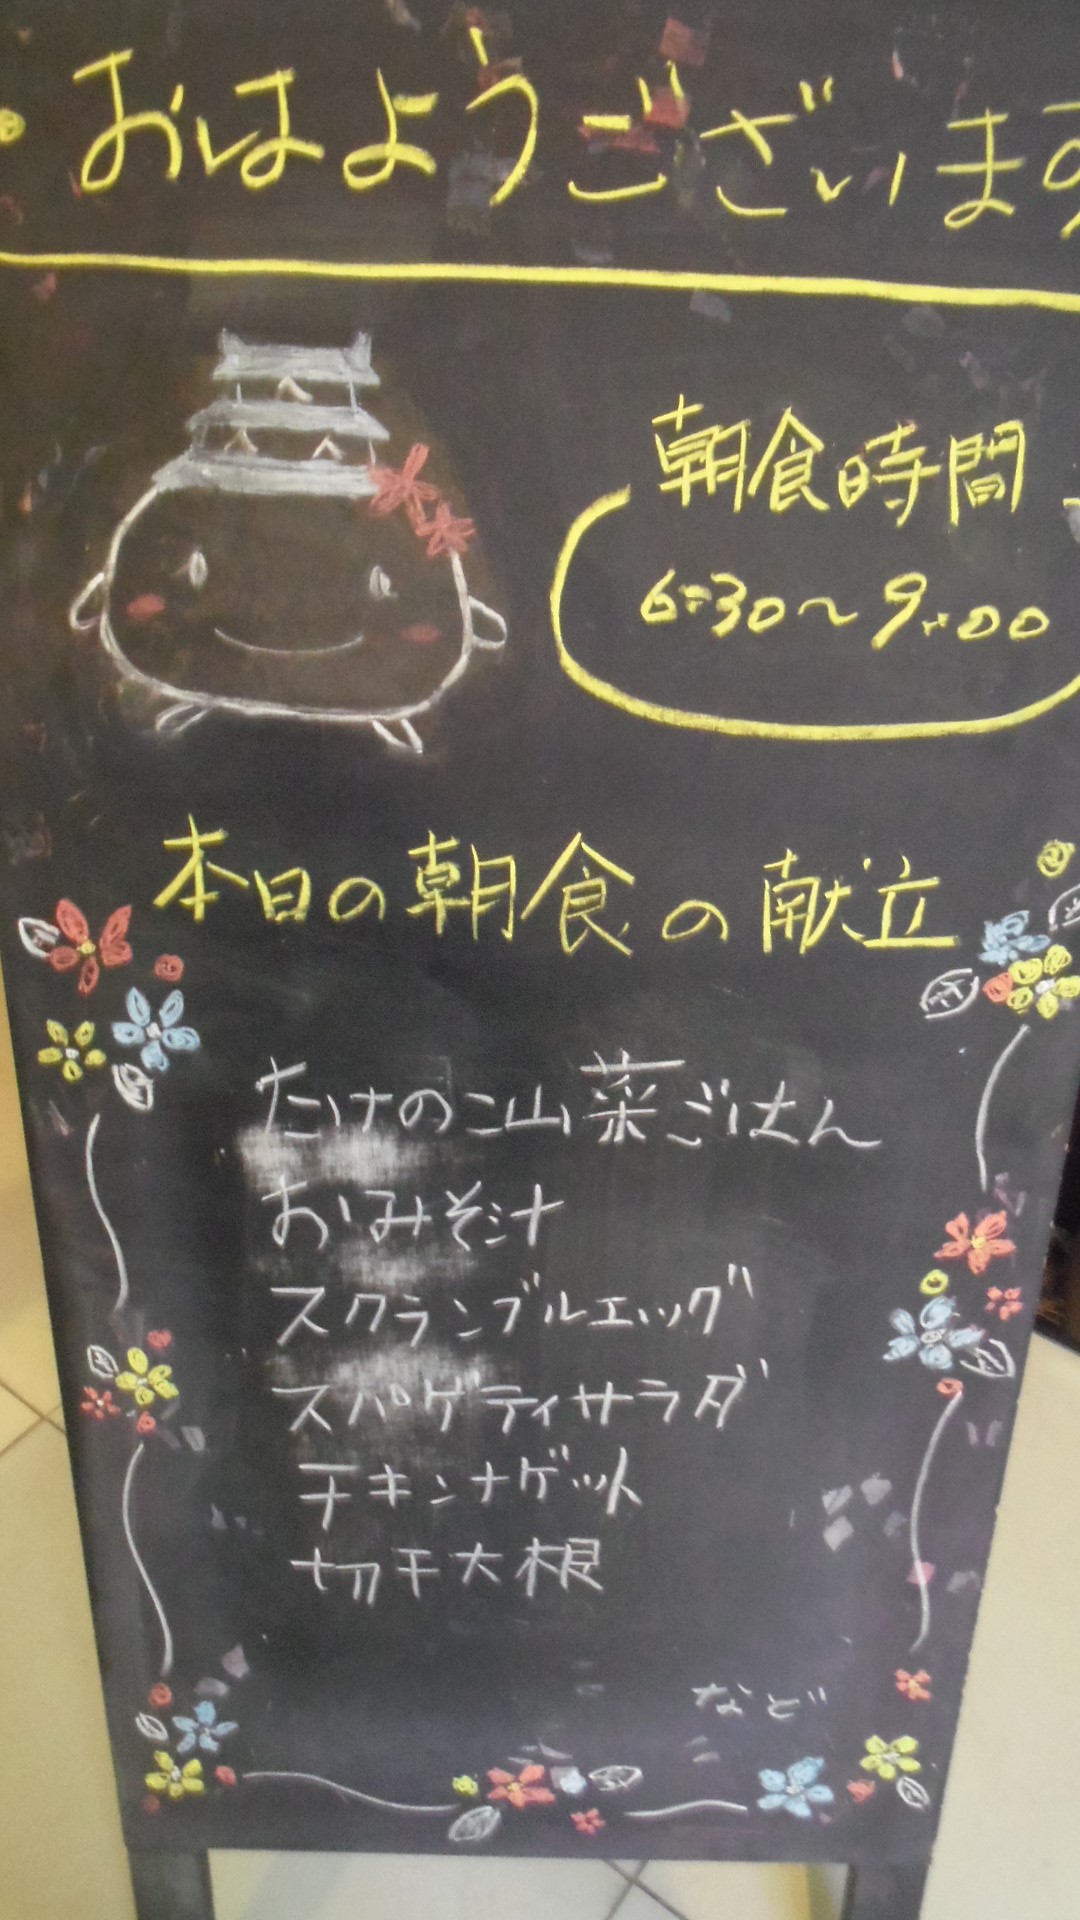 おはようございます
朝食時間
6:30～9:00
本日の朝食の献立
たけのこ山菜ごはん
おみそ汁
スクランブルエッグ
スパゲティサラダ
チキンナゲット
切干大根
など